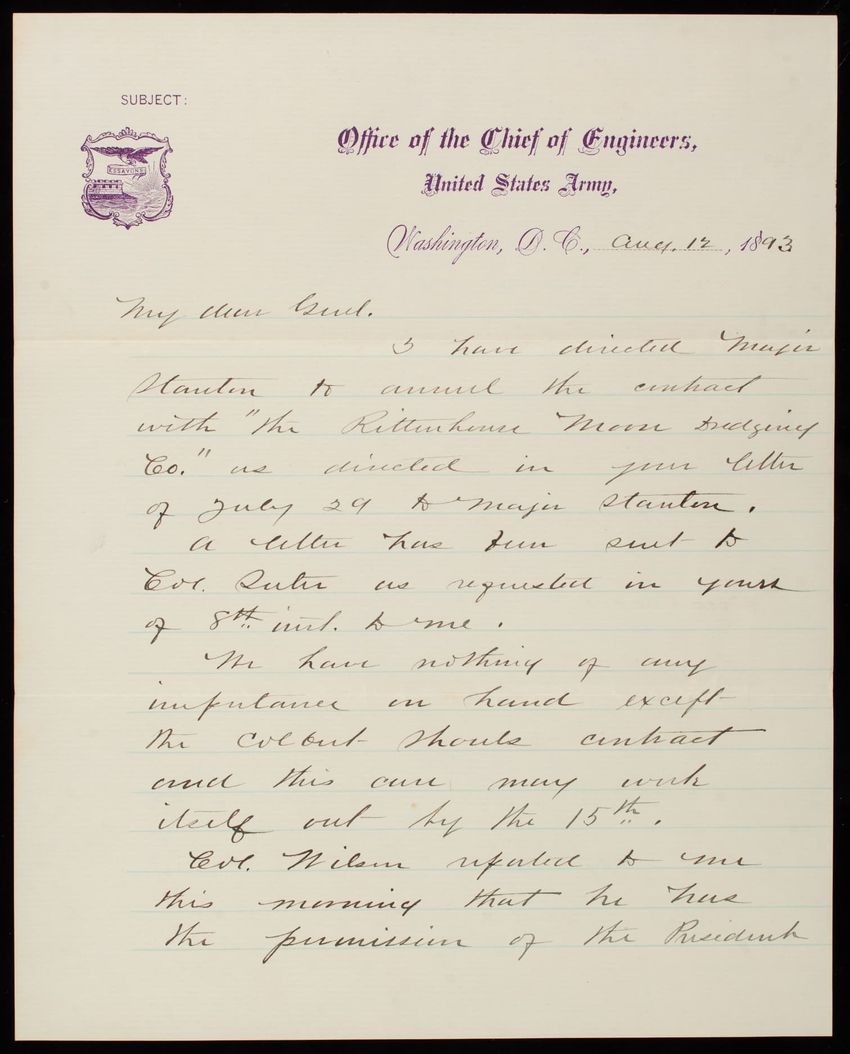 SUBJECT:
ESSAYONS
Office of the Chief of Engineers,
United States Army,
Washington, D. C., Aug. 12, 1893
My dear Genl.
I have directed Major
Stanton to annul the contract
with "the Rittenhouse Moore Dredging
Co." as directed in your letter
of July 29 to Major Stanton.
A letter has been sent to
Col. Suter as requested in yours
of 8th inst. to me.
We have nothing of any
importance on hand except
the Colbert Shoals contract
and this can may work
itself out by the 15th.
Col. Wilson reported to me
this morning that he has
the permission of the President